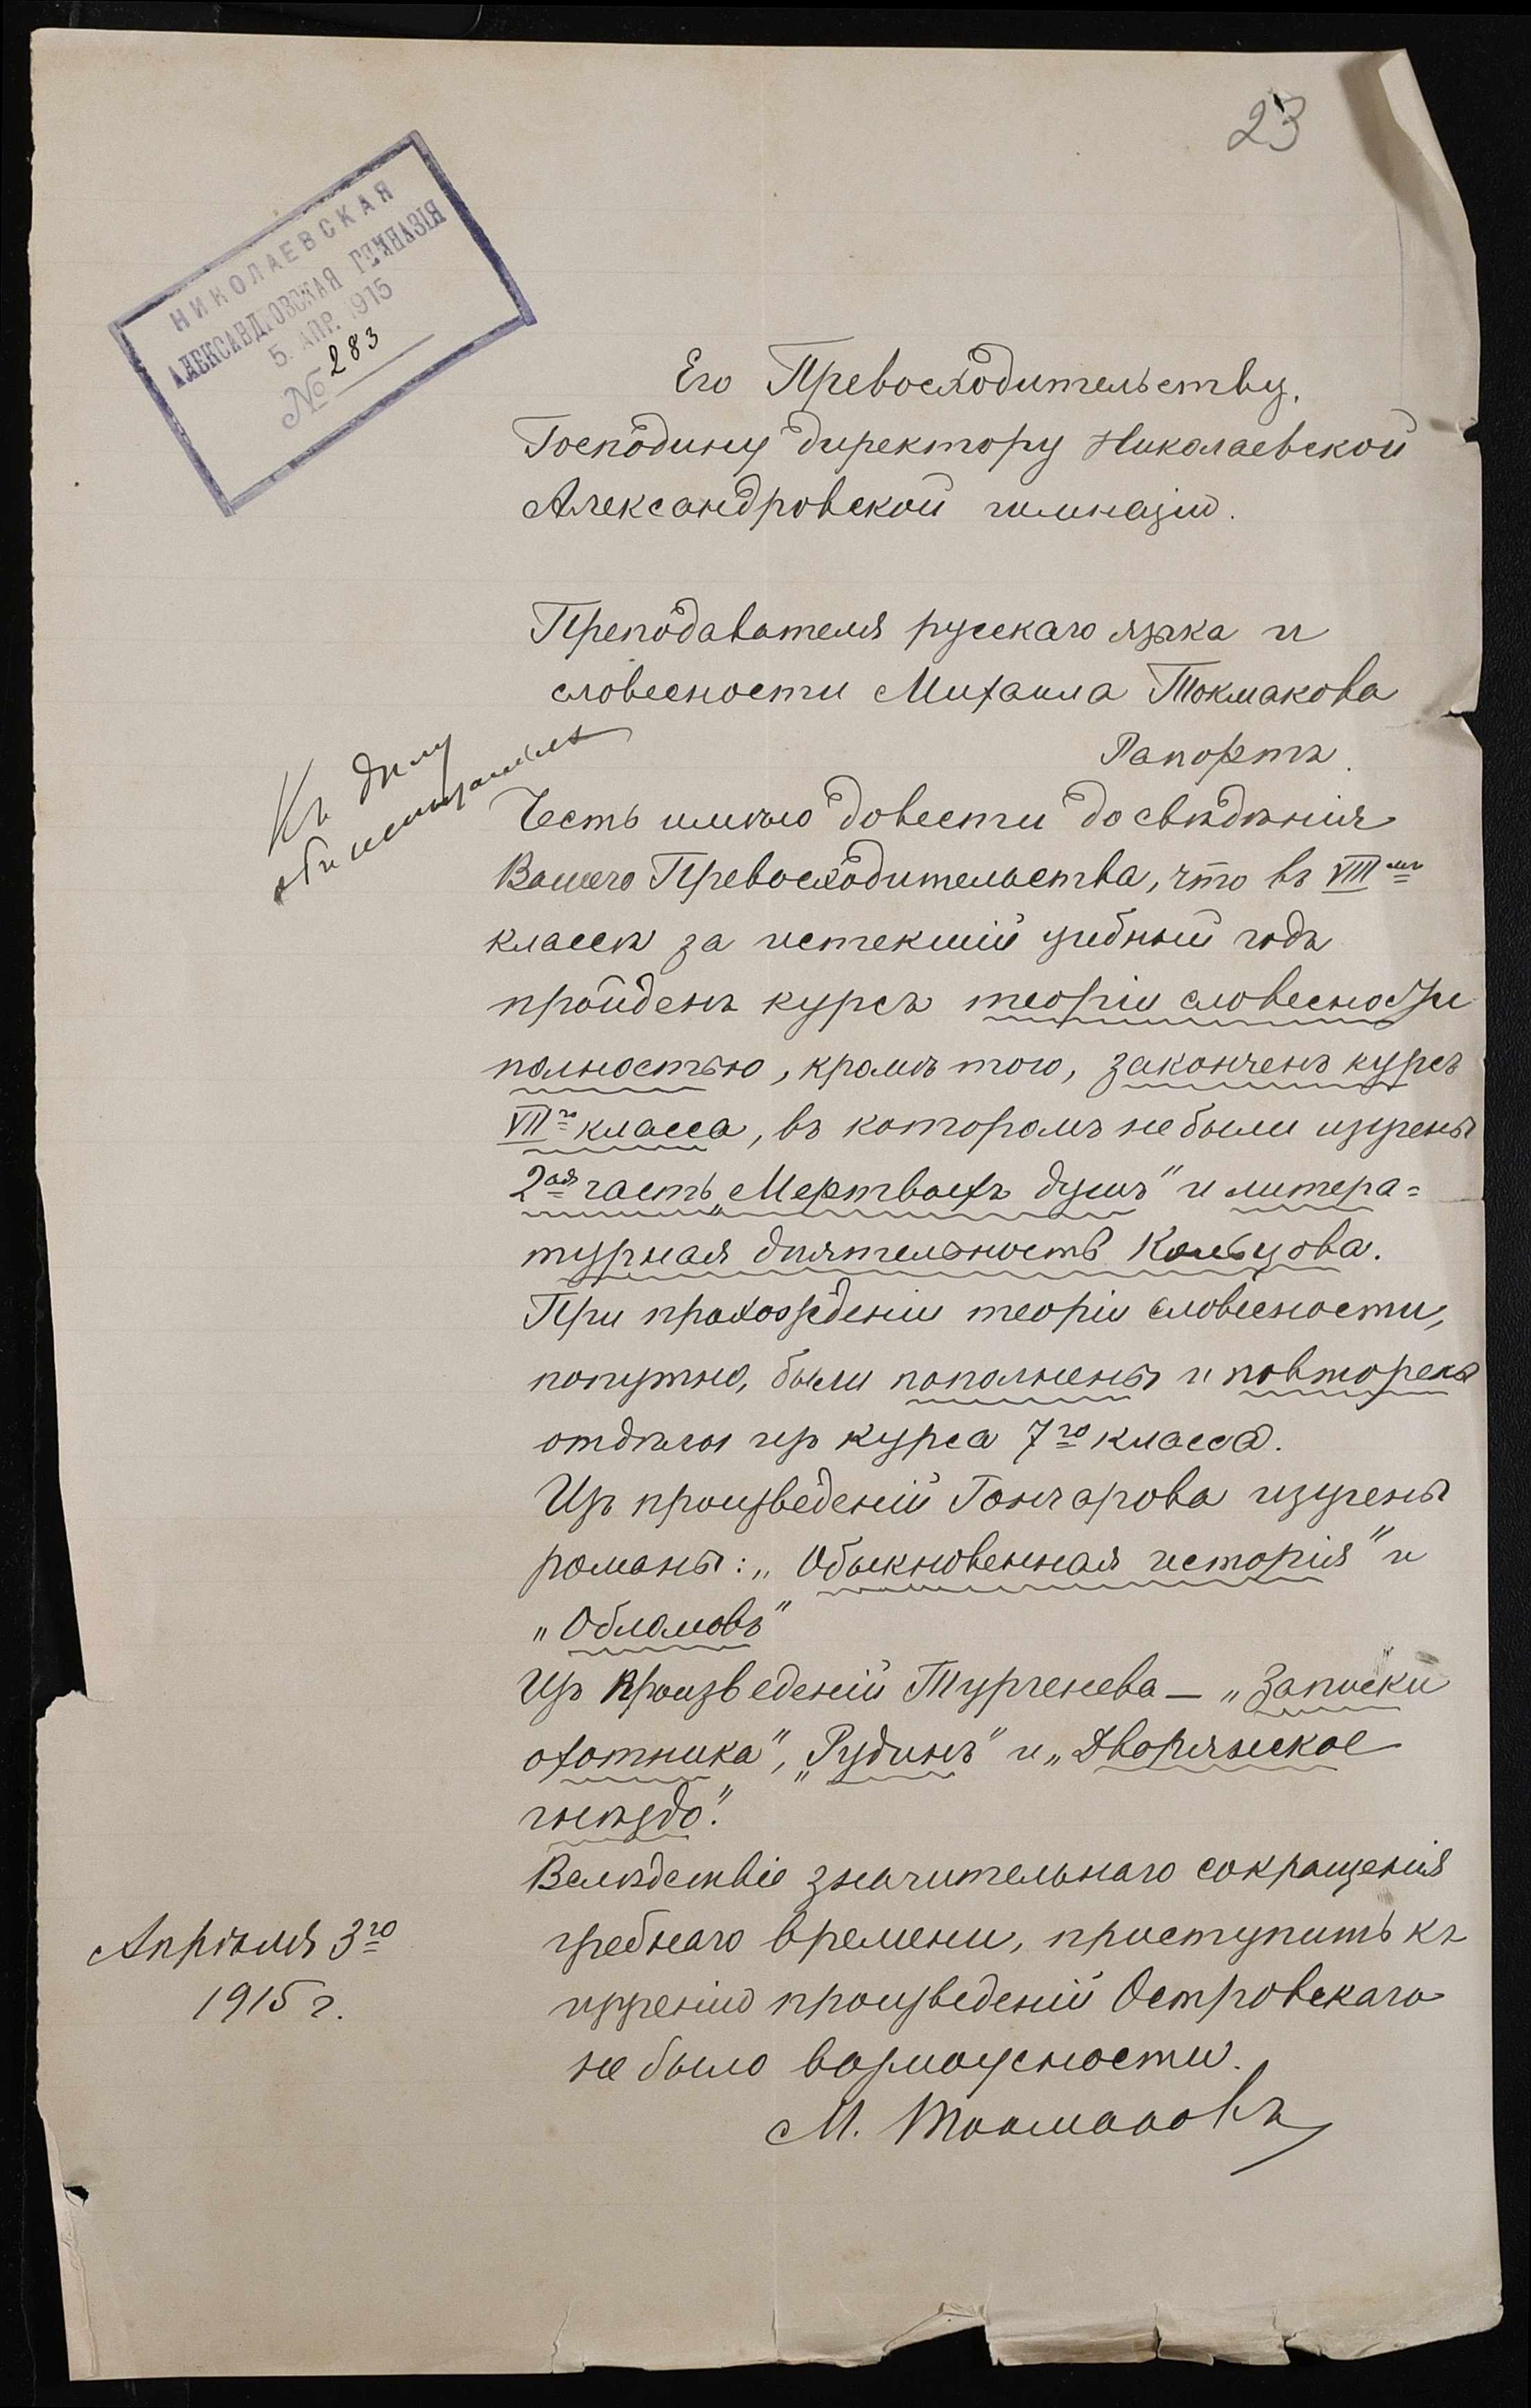 23
НИКОЛАЕВСКАЯ
АЛЕКСАНДРОВСКАЯ ГИМНАЗІЯ
5. АПР. 1915
№ 283
Его Превосходительству,
Господину директору Николаевской
Александровской гимназіи.
Преподавателя русскаго языка и
словесности Михаила Токмакова
Рапортъ.
Къ дѣлу
объ испытаніяхъ
Честь имѣю довести до свѣдѣнія
Вашего Превосходительства, что въ VIII мъ
классѣ за истекшій учебный годъ
пройденъ курсъ теоріи словесности
полностью, кромѣ того, законченъ курсъ
VII го класса, въ которомъ не были изучены
2ая часть „Мертвыхъ душъ" и литера=
турная дѣятельность Кольцова.
При прохожденіи теоріи словесности,
попутно, были пополнены и повторены
отдѣлы изъ курса 7го класса.
Изъ произведеній Гончарова изучены
романы: „Обыкновенная исторія" и
„Обломовъ"
Изъ произведеній Тургенева — „Записки
охотника", „Рудинъ" и „Дворянское
гнѣздо".
Вслѣдствіе значительнаго сокращенія
учебнаго времени, приступить къ
изученію произведеній Островскаго
не было возможности.
Апрѣля 3го
1915 г.
М. Токмаковъ